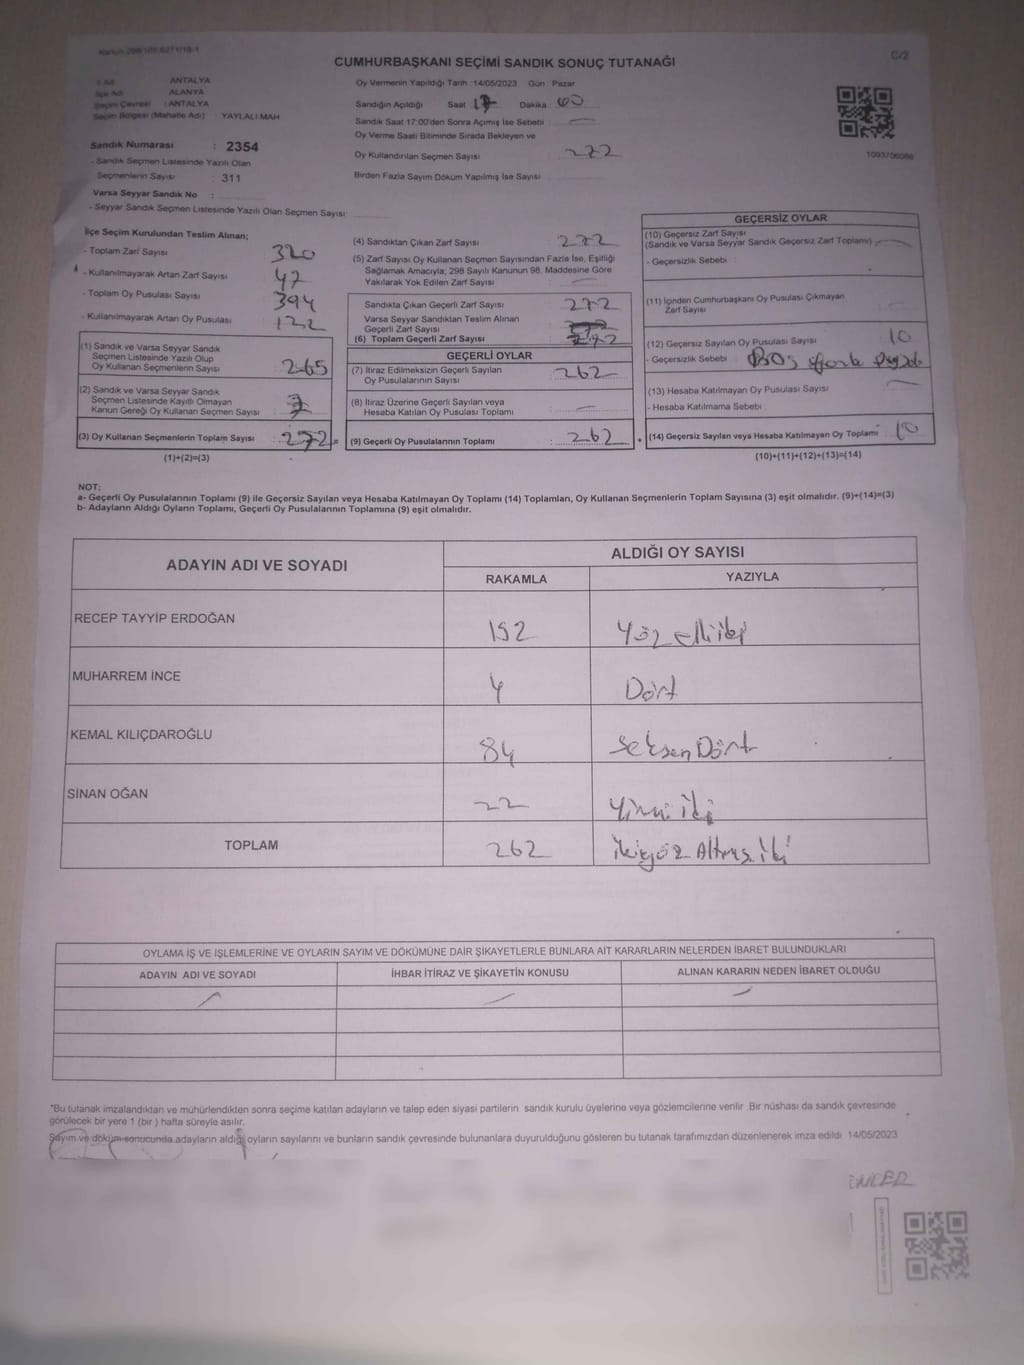 Kanun 298/105 6271/18-1
C/2
CUMHURBAŞKANI SEÇİMİ SANDIK SONUÇ TUTANAĞI
İli Adı : ANTALYA
İlçe Adı : ALANYA
Seçim Çevresi : ANTALYA
Seçim Bölgesi (Mahalle Adı) : YAYLALI MAH
Sandık Numarası : 2354
- Sandık Seçmen Listesinde Yazılı Olan
Seçmenlerin Sayısı : 311
Varsa Seyyar Sandık No :
- Seyyar Sandık Seçmen Listesinde Yazılı Olan Seçmen Sayısı:
Oy Vermenin Yapıldığı Tarih : 14/05/2023 Gün : Pazar
Sandığın Açıldığı Saat 17 Dakika :
Sandık Saat 17:00'den Sonra Açımış İse Sebebi :
Oy Verme Saati Bitiminde Sırada Bekleyen ve
Oy Kullandırılan Seçmen Sayısı 272
Birden Fazla Sayım Döküm Yapılmış İse Sayısı
İlçe Seçim Kurulundan Teslim Alınan;
- Toplam Zarf Sayısı : 320
- Kullanılmayarak Artan Zarf Sayısı : 47
- Toplam Oy Pusulası Sayısı : 394
- Kullanılmayarak Artan Oy Pusulası : 122
(1) Sandık ve Varsa Seyyar Sandık
Seçmen Listesinde Yazılı Olup
Oy Kullanan Seçmenlerin Sayısı : 265
(2) Sandık ve Varsa Seyyar Sandık
Seçmen Listesinde Kayıtlı Olmayan
Kanun Gereği Oy Kullanan Seçmen Sayısı : 7
(3) Oy Kullanan Seçmenlerin Toplam Sayısı : 272 =
(1)+(2)=(3)
(4) Sandıktan Çıkan Zarf Sayısı : 272
(5) Zarf Sayısı Oy Kullanan Seçmen Sayısından Fazla İse, Eşitliği
Sağlamak Amacıyla; 298 Sayılı Kanunun 98. Maddesine Göre
Yakılarak Yok Edilen Zarf Sayısı :
Sandıkta Çıkan Geçerli Zarf Sayısı : 272
Varsa Seyyar Sandıktan Teslim Alınan
Geçerli Zarf Sayısı
(6) Toplam Geçerli Zarf Sayısı : 272
GEÇERLİ OYLAR
(7) İtiraz Edilmeksizin Geçerli Sayılan
Oy Pusulalarının Sayısı : 262
(8) İtiraz Üzerine Geçerli Sayılan veya
Hesaba Katılan Oy Pusulası Toplamı
(9) Geçerli Oy Pusulalarının Toplamı : 262 +
GEÇERSİZ OYLAR
(10) Geçersiz Zarf Sayısı
(Sandık ve Varsa Seyyar Sandık Geçersiz Zarf Toplamı) :
- Geçersizlik Sebebi :
(11) İçinden Cumhurbaşkanı Oy Pusulası Çıkmayan
Zarf Sayısı
(12) Geçersiz Sayılan Oy Pusulası Sayısı : 10
- Geçersizlik Sebebi : Boş
(13) Hesaba Katılmayan Oy Pusulası Sayısı :
- Hesaba Katılmama Sebebi :
(14) Geçersiz Sayılan veya Hesaba Katılmayan Oy Toplamı : 10
(10)+(11)+(12)+(13)=(14)
NOT;
a- Geçerli Oy Pusulalarının Toplamı (9) ile Geçersiz Sayılan veya Hesaba Katılmayan Oy Toplamı (14) Toplamları, Oy Kullanan Seçmenlerin Toplam Sayısına (3) eşit olmalıdır. (9)+(14)=(3)
b- Adayların Aldığı Oyların Toplamı, Geçerli Oy Pusulalarının Toplamına (9) eşit olmalıdır.
ADAYIN ADI VE SOYADI ALDIĞI OY SAYISI
RAKAMLA YAZIYLA
RECEP TAYYİP ERDOĞAN 152 Yüz elli iki
MUHARREM İNCE 4 Dört
KEMAL KILIÇDAROĞLU 84 Seksen Dört
SİNAN OĞAN 22 Yirmi iki
TOPLAM 262 ikiyüz Altmış iki
OYLAMA İŞ VE İŞLEMLERİNE VE OYLARIN SAYIM VE DÖKÜMÜNE DAİR ŞİKAYETLERLE BUNLARA AİT KARARLARIN NELERDEN İBARET BULUNDUKLARI
ADAYIN ADI VE SOYADI İHBAR İTİRAZ VE ŞİKAYETİN KONUSU ALINAN KARARIN NEDEN İBARET OLDUĞU
*Bu tutanak imzalandıktan ve mühürlendikten sonra seçime katılan adayların ve talep eden siyasi partilerin sandık kurulu üyelerine veya gözlemcilerine verilir. Bir nüshası da sandık çevresinde
görülecek bir yere 1 (bir ) hafta süreyle asılır.
Sayım ve döküm sonucunda adayların aldığı oyların sayılarını ve bunların sandık çevresinde bulunanlara duyurulduğunu gösteren bu tutanak tarafımızdan düzenlenerek imza edildi. 14/05/2023